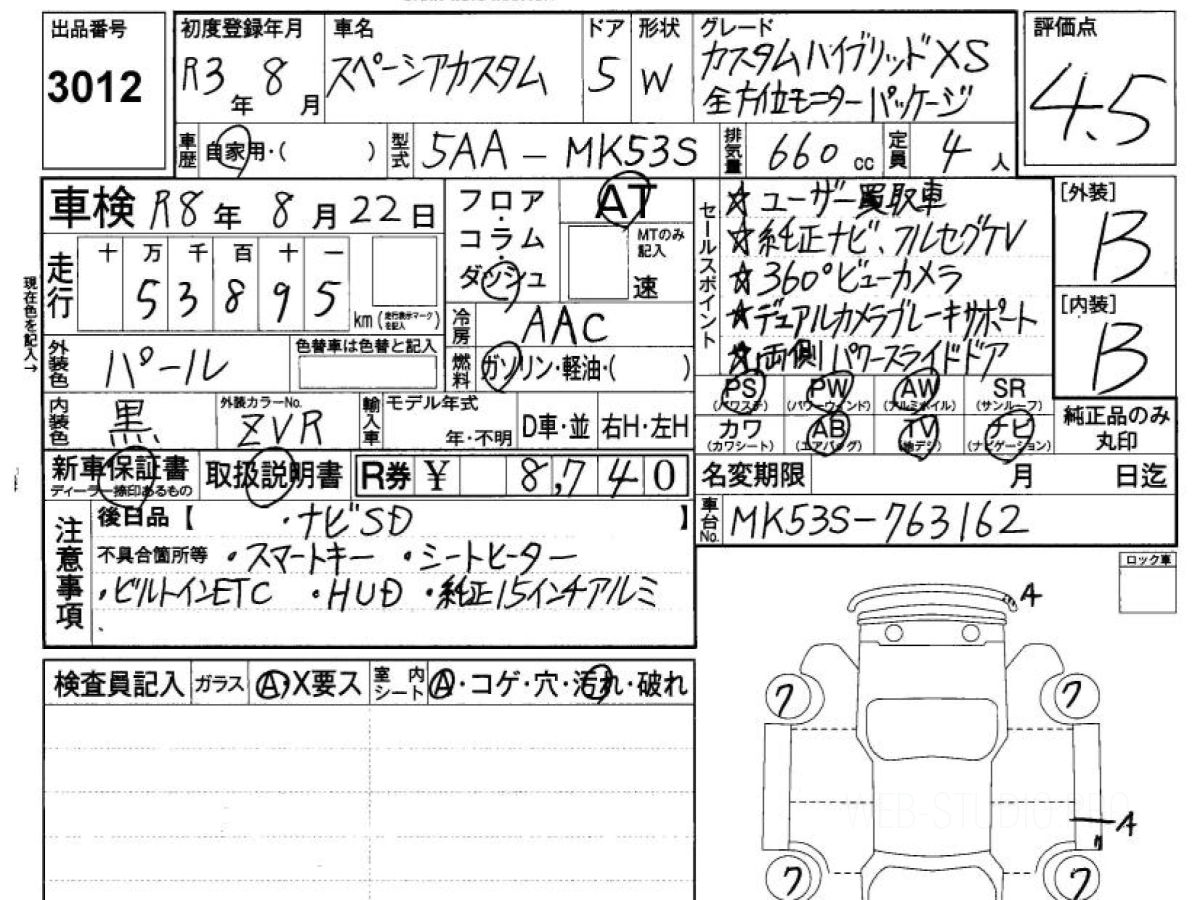 出品番号
3012
初度登録年月
R3年 8月
車名
スペーシアカスタム
ドア
5
形状
W
グレード
カスタムハイブリッドXS
全方位モニターパッケージ
評価点
4.5
車歴
自家用・( )
型式
5AA-MK53S
排気量
660cc
定員
4人
車検 R8年 8月22日
走行
十 万 千 百 十 一
5 3 8 9 5
km (走行表示マークを記入)
現在色を記入→
外装色
パール
色替車は色替と記入
内装色
黒
外装カラーNo.
ZVR
フロア
コラム
ダッシュ
AT
MTのみ記入
速
冷房
AAC
燃料
ガソリン・軽油・( )
輸入車
モデル年式
年・不明
D車・並
右H・左H
セールスポイント
☆ユーザー買取車
☆純正ナビ、フルセグTV
☆360°ビューカメラ
☆デュアルカメラブレーキサポート
☆両側パワースライドドア
[外装]
B
[内装]
B
PS
(パワステ)
PW
(パワーウィンド)
AW
(アルミホイル)
SR
(サンルーフ)
カワ
(カワシート)
AB
(エアバッグ)
TV
(地デジ)
ナビ
(ナビゲーション)
純正品のみ
丸印
新車保証書
ディーラー捺印あるもの
取扱説明書
R券 ¥ 8,740
名変期限 月 日迄
車台No.
MK53S-763162
注意事項
後日品【 ・ナビSD 】
不具合箇所等 ・スマートキー ・シートヒーター
・ビルトインETC ・HUD ・純正15インチアルミ
ロック車
検査員記入
ガラス
A・X要ス
室内シート
A・コゲ・穴・汚れ・破れ
A
ワ
ワ
A
ワ
ワ
ワ
WEB-STUDIO.PRO